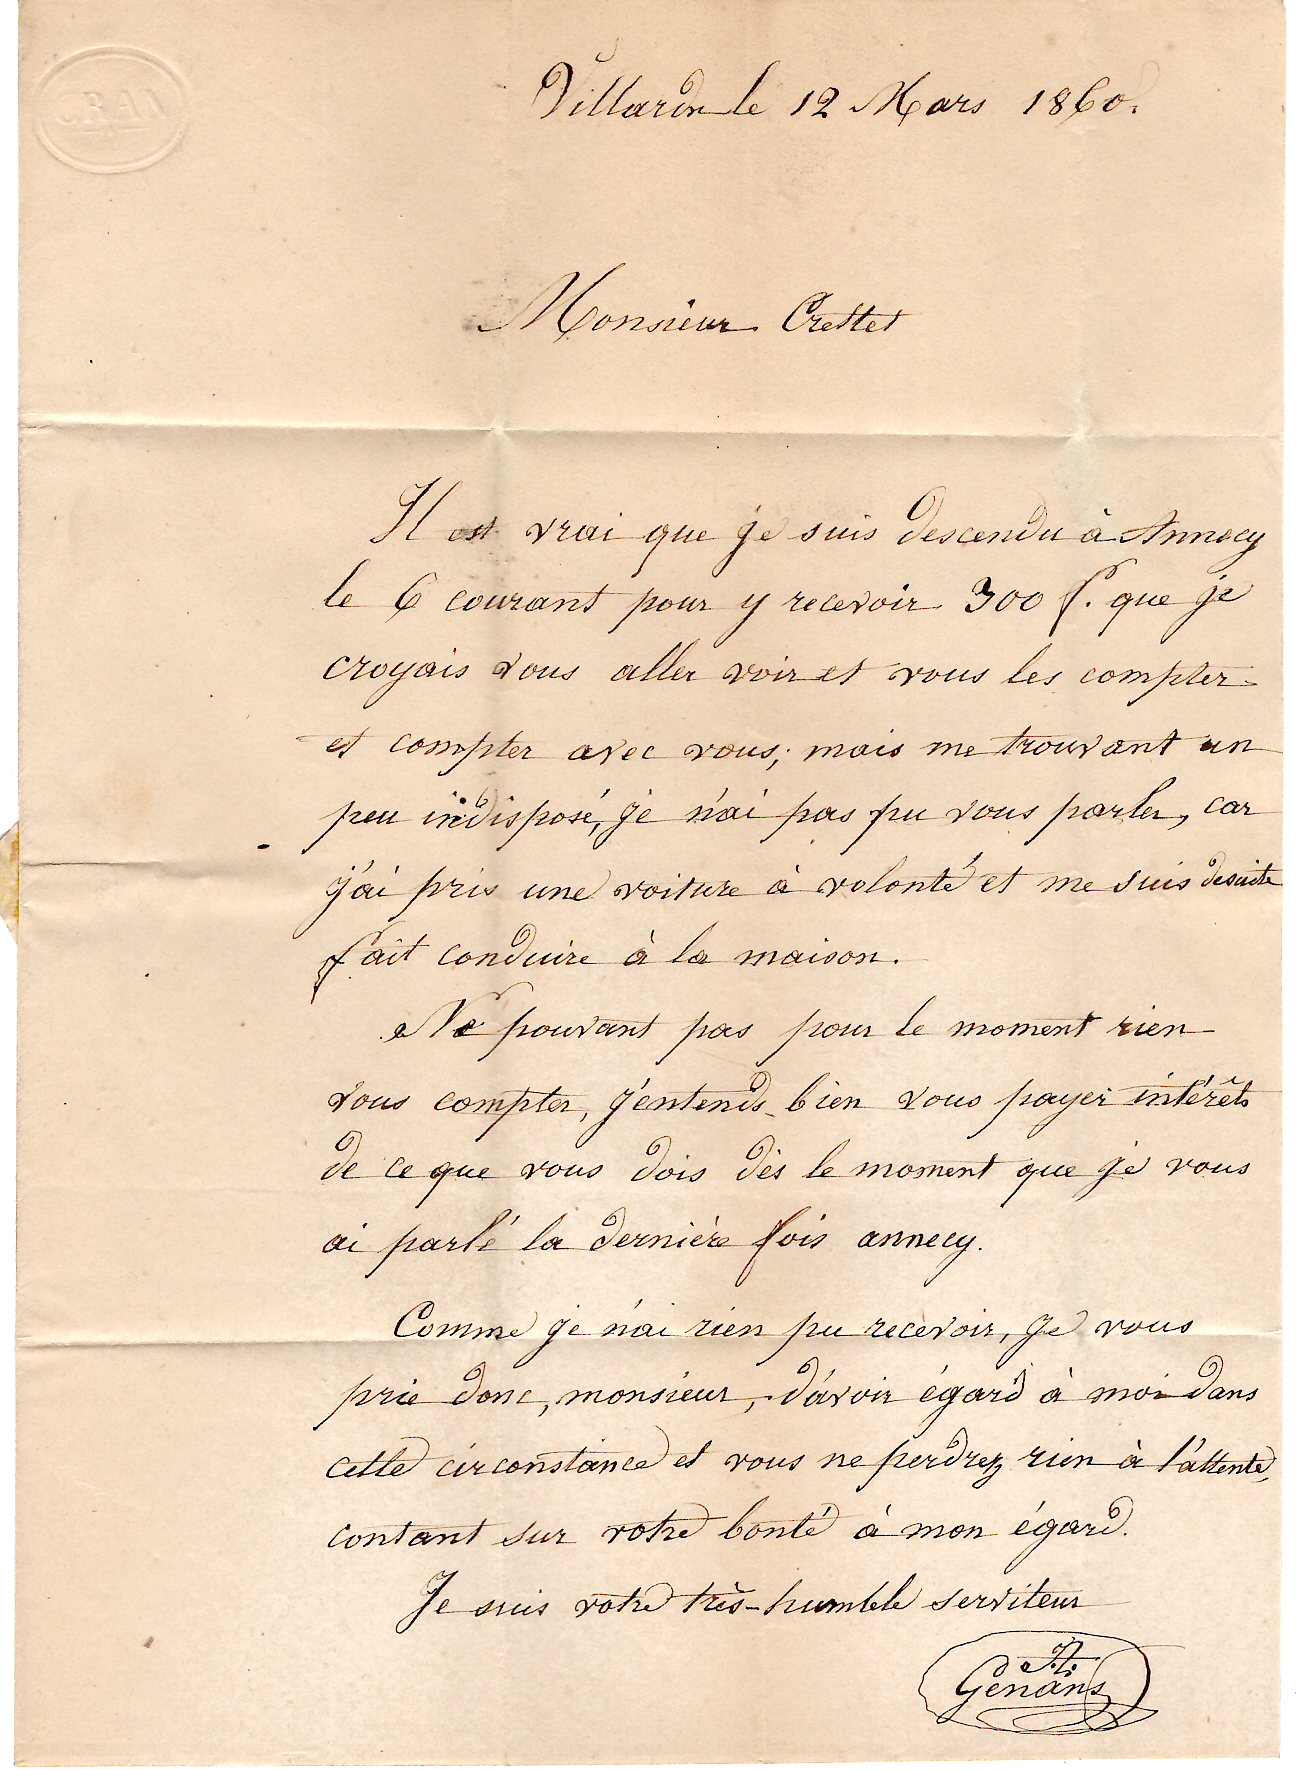 CRAN
Villard le 12 Mars 1860.
Monsieur Crettet
Il est vrai que je suis descendu à Annecy
le 6 courant pour y recevoir 300 f. que je
croyais vous aller voir et vous les compter
et compter avec vous; mais me trouvant un
peu indisposé, je n'ai pas pu vous parler, car
j'ai pris une voiture à volonté et me suis desuite
fait conduire à la maison.
Ne pouvant pas pour le moment rien
vous compter, j'entends bien vous payer intérêts
de ce que vous dois dès le moment que je vous
ai parlé la dernière fois annecy.
Comme je n'ai rien pu recevoir, je vous
prie donc, monsieur, d'avoir égard à moi dans
cette circonstance et vous ne perdrez rien à l'attente,
contant sur votre bonté à mon égard.
Je suis votre très-humble serviteur
Genans